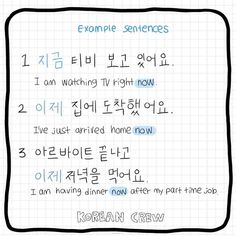 Example sentences
1 지금 티비 보고 있어요.
I am watching TV right now.
2 이제 집에 도착했어요.
I've just arrived home now.
3 아르바이트 끝나고
이제 저녁을 먹어요.
I am having dinner now after my part time job.
KOREAN CREW